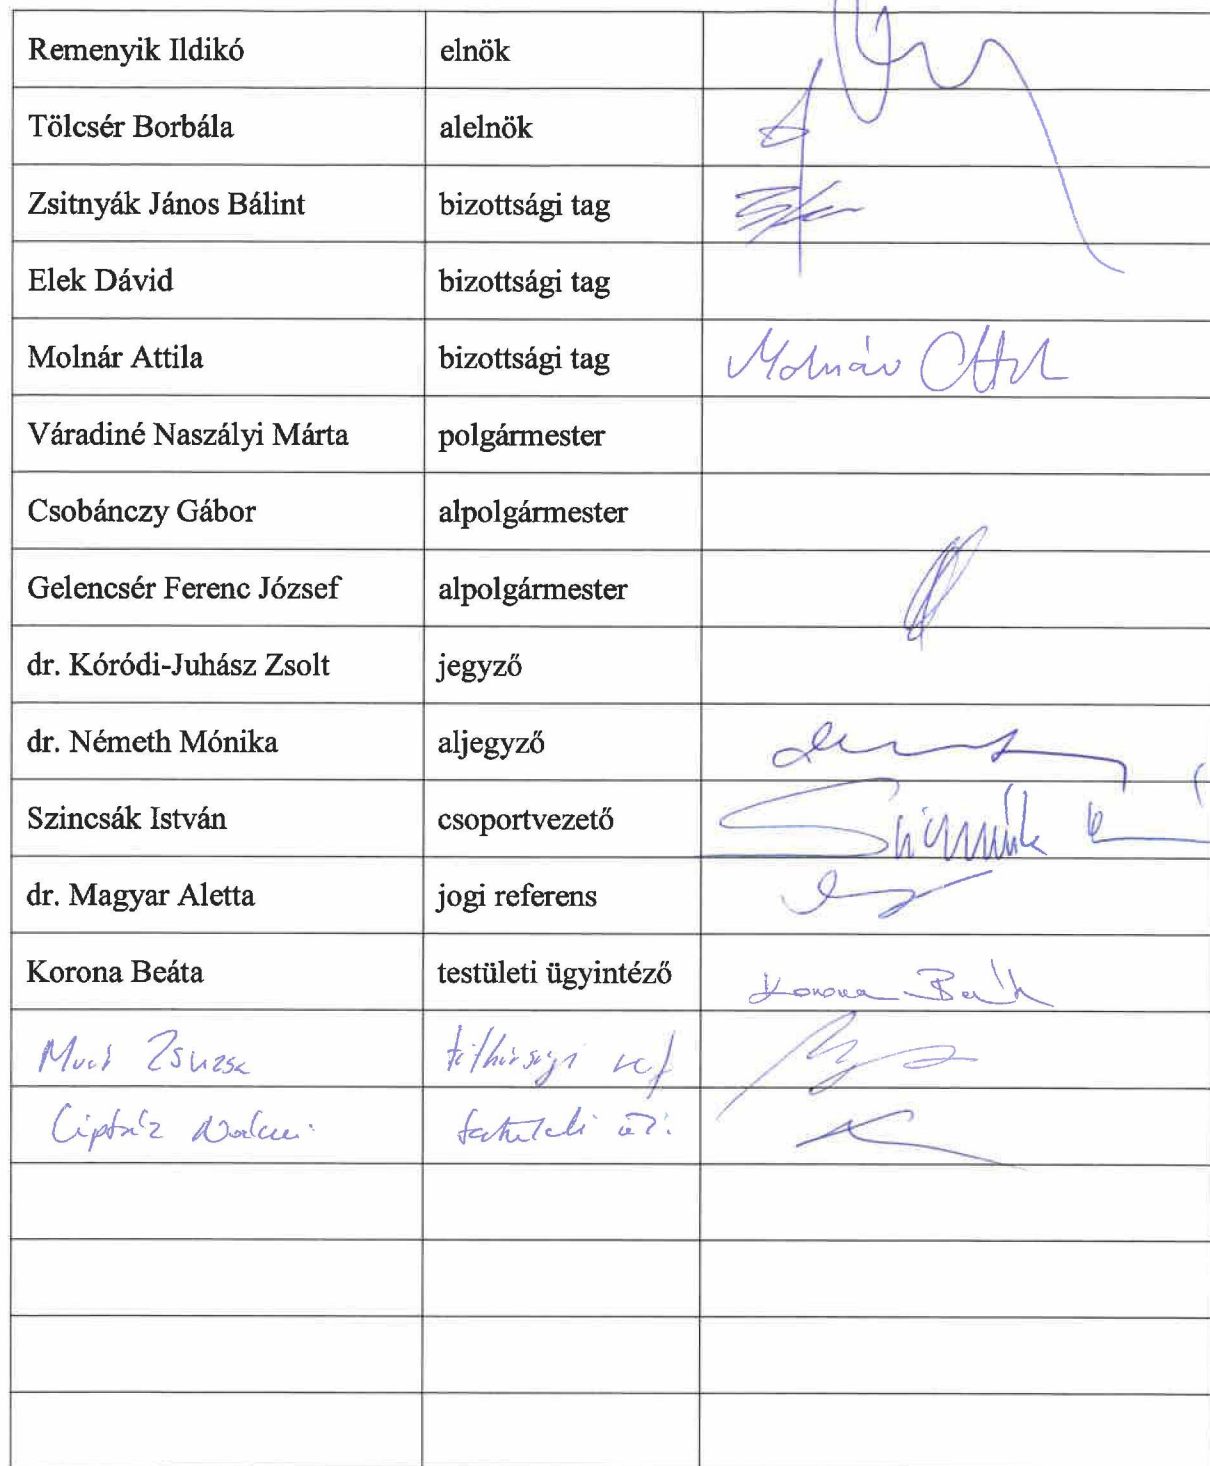 Remenyik Ildikó elnök
Tölcsér Borbála alelnök
Zsitnyák János Bálint bizottsági tag
Elek Dávid bizottsági tag
Molnár Attila bizottsági tag Molnár
Váradiné Naszályi Márta polgármester
Csobánczy Gábor alpolgármester
Gelencsér Ferenc József alpolgármester
dr. Kóródi-Juhász Zsolt jegyző
dr. Németh Mónika aljegyző
Szincsák István csoportvezető
dr. Magyar Aletta jogi referens
Korona Beáta testületi ügyintéző Korona
Zsuzsa